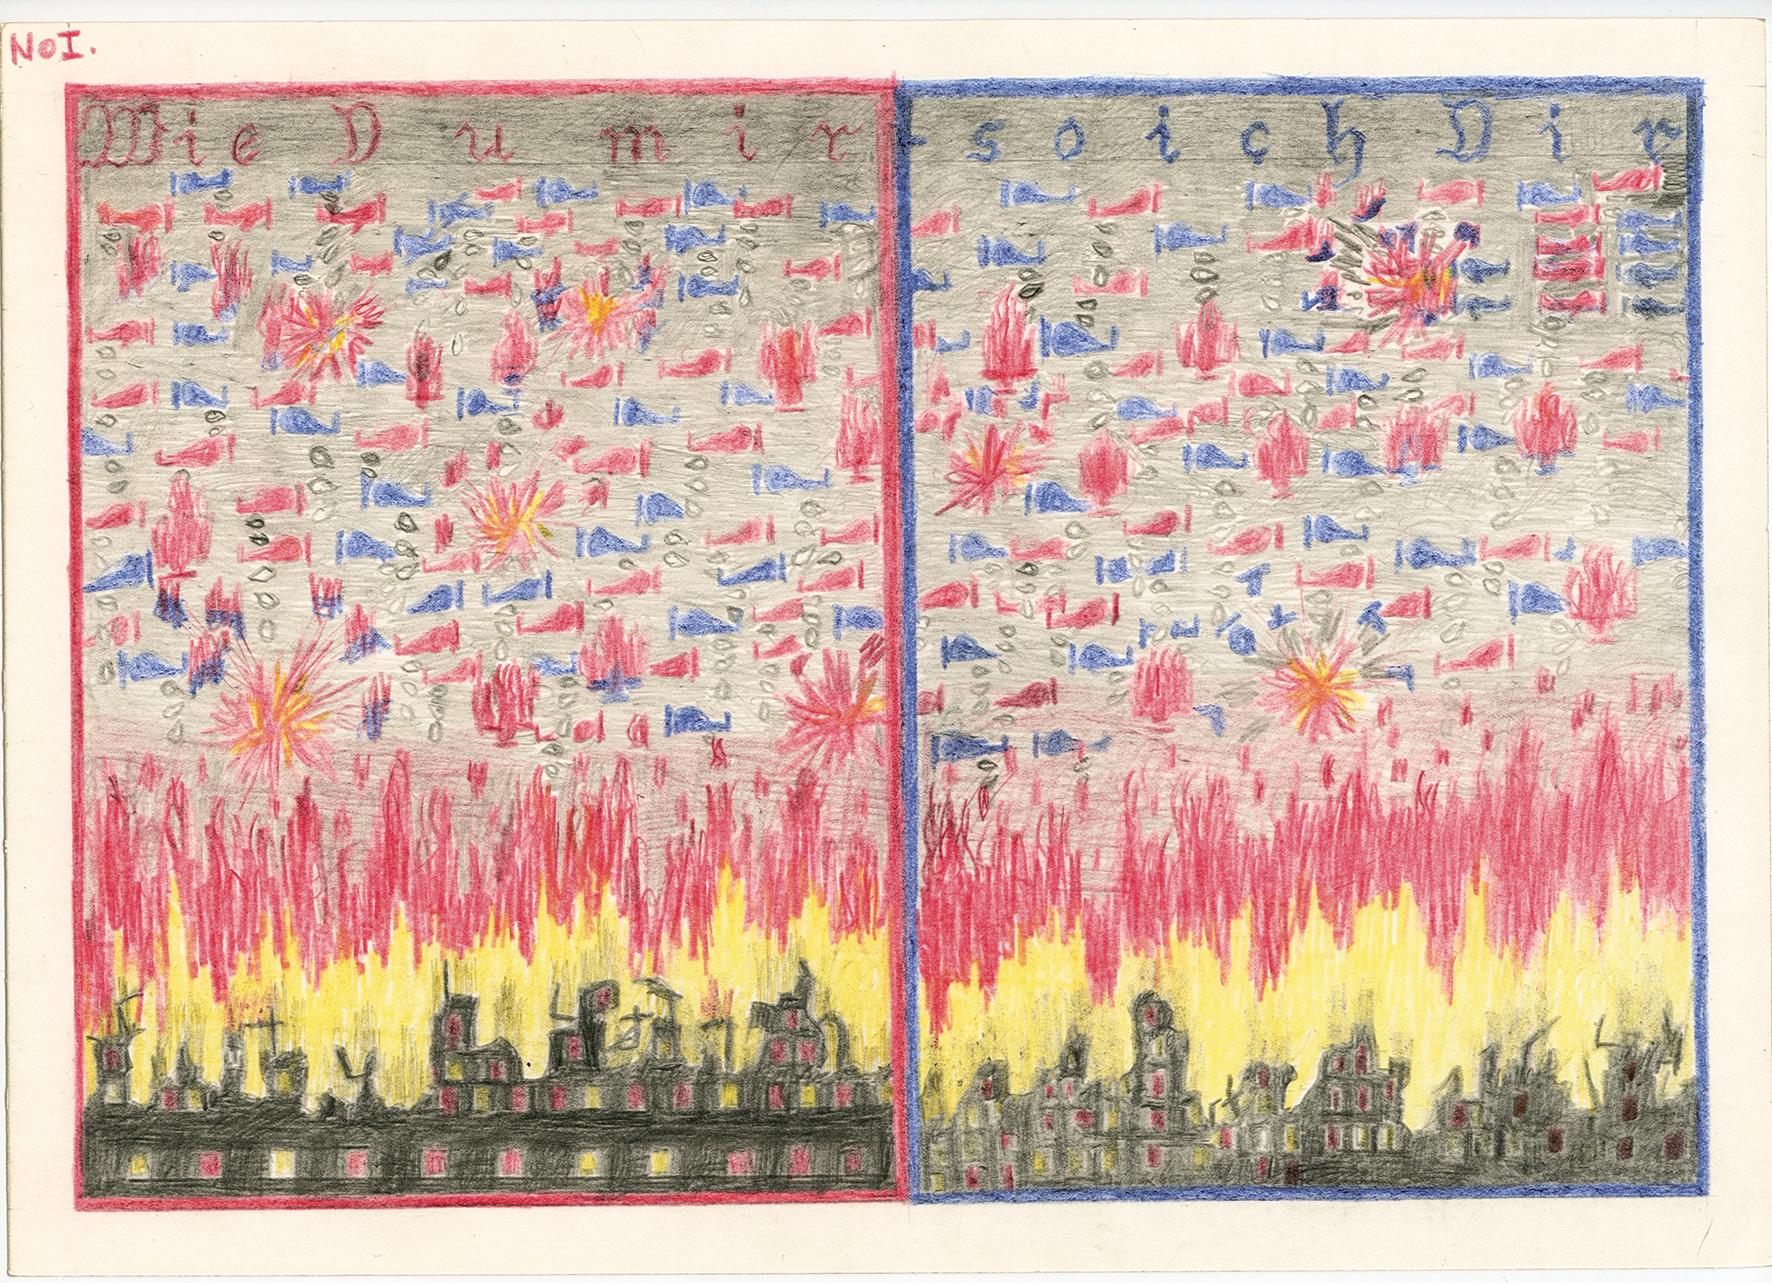 No I.
Wie Du mir - so ich Dir